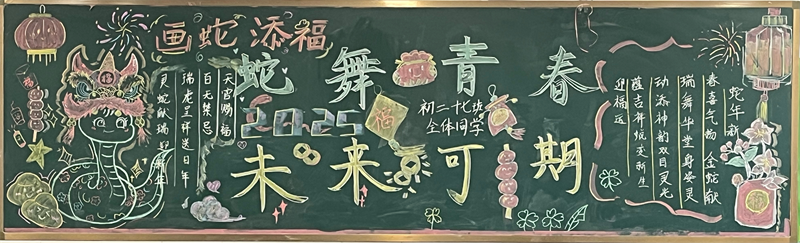 画蛇添福
蛇舞青春
2025
初二十七班
全体同学
未来可期
天官赐福
百无禁忌
瑞龙呈祥送日年
灵蛇献瑞
年
福
福
蛇年新
春喜气扬金蛇献
瑞舞华堂身姿灵
动添神韵双目灵光
蕴吉祥蜕变新生
迎福运